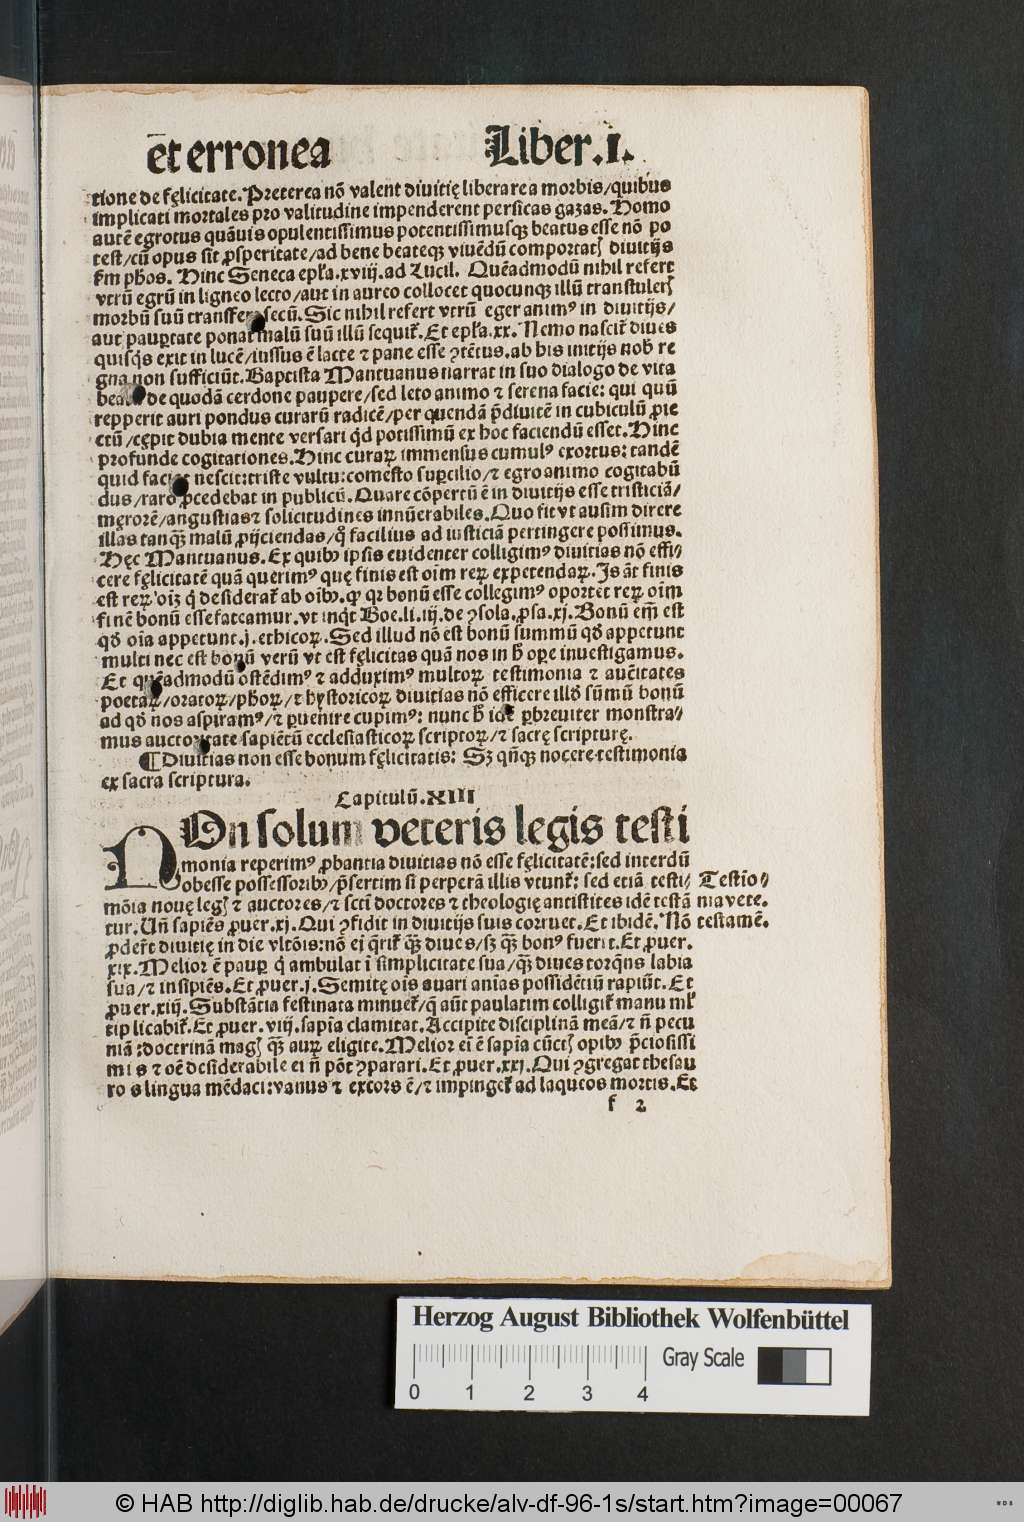 et erronea Liber.I.
tione de fęlicitate. Preterea nō valent diuitię liberare a morbis/quibus
implicati mortales pro valitudine impenderent persicas gazas. Homo
autē egrotus quāuis opulentissimus potentissimusqꝫ beatus esse nō po
test/cū opus sit ꝓsperitate/ad bene beateqꝫ viuēdū comportatꝭ diuitijs
ẜm pħos. Hinc Seneca epľa.xviij.ad Lucil. Quēadmodū nihil refert
vtrū egrū in ligneo lecto/aut in aureo collocet quocunqꝫ illū transtulerꝭ
morbū suū transfert secū. Sic nihil refert vtrū eger animꝰ in diuitijs/
aut pauꝑtate ponat malū suū illū sequit̃. Et epľa.xx. Nemo nascit̃ diues
quisqs exit in lucē/iussus ē lacte ⁊ pane esse ꝯtētus. ab his initijs nob̄ re
gna non sufficiūt. Baptista Mantuanus narrat in suo dialogo de vita
beata de quodā cerdone paupere/sed leto animo ⁊ serena facie: qui quū
repperit auri pondus curarū radicē/per quendā p̄diuitē in cubiculū ꝓie
ctū/cępit dubia mente versari qd potissimū ex hoc faciendū esset. Hinc
profunde cogitationes. Hinc curaꝝ immensus cumulꝰ exortus: tandē
quid faciat nescit: triste vultu: comesto suꝑcilio/⁊ egro animo cogitabū
dus/raro ꝓcedebat in publicū. Quare cōpertū ē in diuitijs esse tristiciā/
męrorē/angustias ⁊ solicitudines innūerabiles. Quo fit vt ausim dicere
illas tanqꝫ malū ꝓijciendas/q̊ facilius ad iusticiā pertingere possimus.
Hęc Mantuanus. Ex quibꝰ ipsis euidenter colligimꝰ diuitias nō effi⸗
cere fęlicitatē quā querimꝰ quę finis est oīm reꝝ expetendaꝝ. Is āt finis
est reꝝ oīꝫ q̇ desiderat̃ ab oībꝰ. qꝫ qr bonū esse collegimꝰ oportet reꝝ oīm
finē bonū esse fateamur. vt inqt Boe.li.iij.de ꝯsola.ꝓsa.xj. Bonū em̄ est
qđ oīa appetunt.j.ethicoꝝ. Sed illud nō est bonū summū qđ appetunt
multi nec est bonū verū vt est fęlicitas quā nos in h̄ oꝑe inuestigamus.
Et quēadmodū ostēdimꝰ ⁊ adduximꝰ multoꝝ testimonia ⁊ auc̄itates
poetaꝝ/oratoꝝ/pħoꝝ/⁊ hystoricoꝝ diuitias nō efficere illđ sūmū bonū
ad qđ nos aspiramꝰ/⁊ ꝑuenire cupimꝰ: nunc h̄ idē ꝑbreuiter monstra⸗
mus auctoritate sapiētū ecclesiasticoꝝ scriptoꝝ/⁊ sacrę scripturę.
¶ Diuitias non esse bonum fęlicitatis: Sꝫ qn̄qꝫ nocere testimonia
ex sacra scriptura.
Capitulū.XIII
NOn solum veteris legis testi
monia reperimꝰ ꝓbantia diuitias nō esse fęlicitatē: sed interdū
obesse possessoribꝰ/p̄sertim si perperā illis vtunt̃: sed etiā testi⸗
mōia nouę legꝭ ⁊ auctores/⁊ scti doctores ⁊ theologię antistites idē testā
tur. Uñ sapiēs ꝓuer.xj. Qui ꝯfidit in diuitijs suis corruet. Et ibidē. Nō
ꝓder̄t diuitię in die vltōis: nō ei q̄rit̃ qꝫ diues/sꝫ qꝫ bonꝰ fuerit. Et ꝓuer.
xix. Melior ē pauꝑ q̇ ambulat ī simplicitate sua/qꝫ diues torqns labia
sua/⁊ insipiēs. Et ꝓuer.j. Semitę ois auari anīas possidētiū rapiūt. Et
ꝓuer.xiij. Substātia festinata minuet̃/q̄ aūt paulatim colligit̃ manu mľ
tiplicabit̃. Et ꝓuer.viij. sapīa clamitat. Accipite disciplinā meā/⁊ n̄ pecu
niā: doctrinā magꝭ qꝫ auꝝ eligite. Melior ei ē sapīa cūctꝭ opibꝰ p̄ciosissi
mis ⁊ oē desiderabile ei n̄ pōt ꝯparari. Et ꝓuer.xxj. Qui ꝯgregat thesau
ros lingua mēdaci: vanus ⁊ excors ē/⁊ impinget̃ ad laqueos mortis. Et
f 2
Testīo⸗
nia vete.
testamē.
Herzog August Bibliothek Wolfenbüttel
Gray Scale
0 1 2 3 4
© HAB http://diglib.hab.de/drucke/alv-df-96-1s/start.htm?image=00067